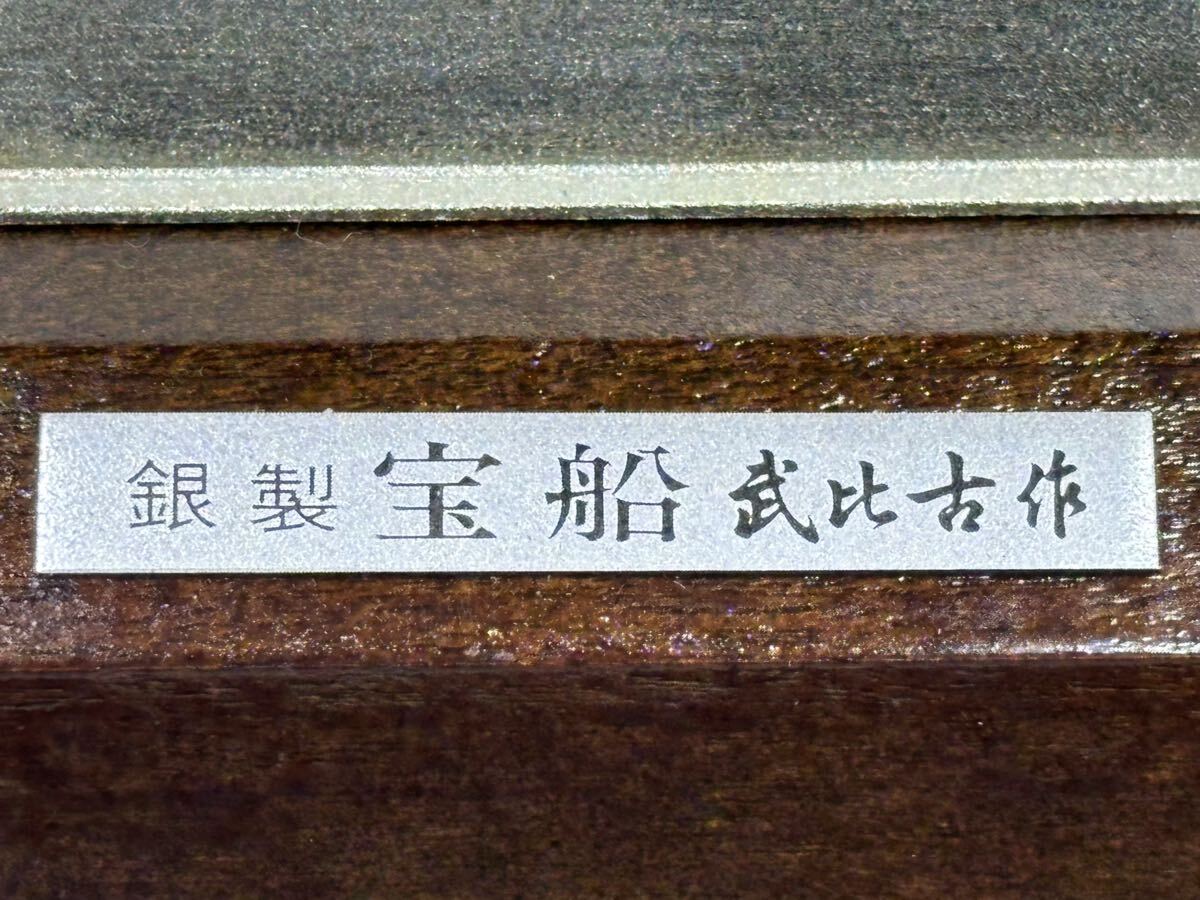 銀製 宝船 武比古作